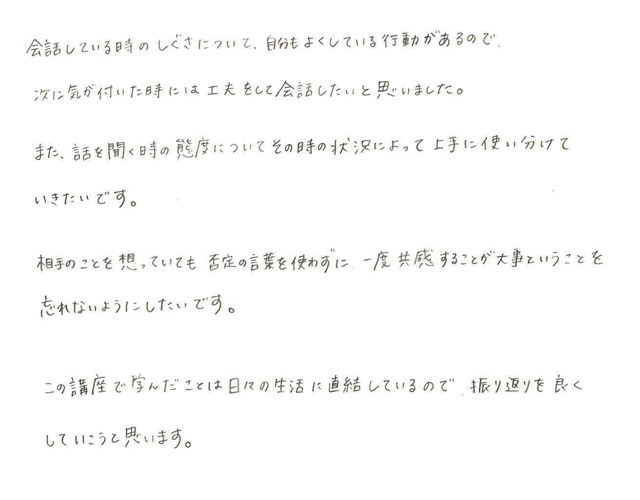 会話している時のしぐさについて、自分もよくしている行動があるので、
次に気が付いた時には工夫をして会話したいと思いました。
また、話を聞く時の態度についてその時の状況によって上手に使い分けて
いきたいです。
相手のことを想っていても否定の言葉を使わずに、一度共感することが大事ということを
忘れないようにしたいです。
この講座で学んだことは日々の生活に直結しているので、振り返りを良く
していこうと思います。